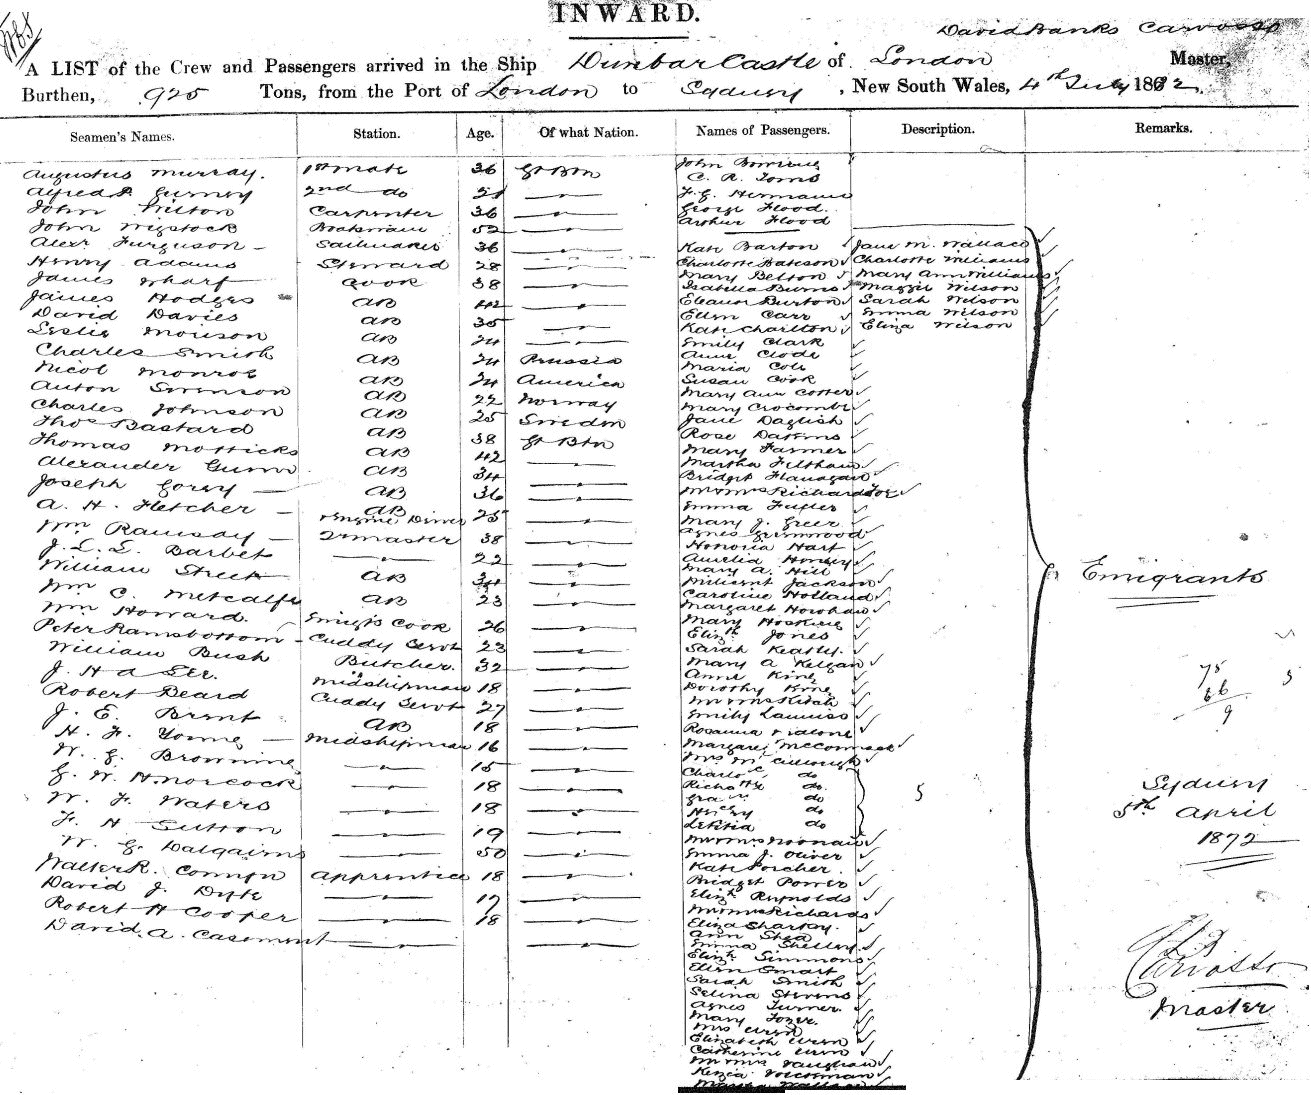 INWARD.
David Banks Carvosso
A LIST of the Crew and Passengers arrived in the Ship Dunbar Castle of London Master,
Burthen, 925 Tons, from the Port of London to Sydney, New South Wales, 4th July 1872.
Seamen's Names. Station. Age. Of what Nation. Names of Passengers. Description. Remarks.
Augustus Murray. 1st mate 36 Gt Btn
Alfred Gurney 2nd do
John Wilson Carpenter 36
John Boatswain 52
Alexr Furguson Sailmaker 36
Henry Adams Steward 28
James Wharf Cook 38
James Hodges AB 42
David Davies AB 35
Leslie AB 24
Charles Smith AB 24 Prussia
Nicol Monroe AB 24 America
Anton Swenson AB 22 Norway
Charles Johnson AB 25 Sweden
Thos Bastard AB 38 Gt Btn
Thomas Motticks AB 42
Alexander Gunn AB 34
Joseph Gorey AB 36
A. H. Fletcher AB + Engine Driver 25
Wm Ramsay 2r master 38
J. L. L. Barbet 22
William Street AB 34
Wm C. Metcalfe AB 23
Wm Howard. Emigts Cook 26
Peter Ramsbottom Cuddy Servt 23
William Bush Butcher. 32
J. H a Midshipman 18
Robert Beard Cuddy Servt 27
J. E. Brent AB 18
H. F. Young Midshipman 16
W. G. Browning 15
G. W. H. Norcock 18
W. F. Waters 18
F. H Sutton 19
W. G. Dalgairns 50
Walter R. Apprentice 18
David J. 17
Robert H Cooper 18
David. A. Casement
John
C. R. Toms
F. G. Hermann
George Flood.
Arthur Flood
Kate Barton Jane M. Wallace
Charlotte Bateson Charlotte Williams
Mary Belton Mary Ann Williams
Isabella Burns Maggie Wilson
Eleanor Burton Sarah Wilson
Ellen Carr Emma Wilson
Kate Charlton Eliza Wilson
Emily Clark
Anne Clode
Maria Cole
Susan Cook
Mary Ann Cotter
Mary Crocombe
Jane Daglish
Rose Dakins
Mary Farmer
Martha Feltham
Bridget Flanagan
Mr & Mrs Richard Foe
Emma Fuller
Mary J. Greer
Agnes Grimwood
Honoria Hart
Aurelia
Mary A. Hill
Milisent Jackson
Caroline Holland
Margaret
Mary Hosking
Elizth Jones
Sarah Keatly.
Mary A Kelgan
Anne King
Dorothy King
Mr & Mrs
Emily
Rosanna
Margaret McCormack
Mrs McCullough
Charlote do
do
Grace do
Henry do
Letitia do
5
Mr & Mrs Noonan
Emma J. Oliver
Kate Porcher.
Bridget Power
Elizth Reynolds
Mr & Mrs Richards
Eliza Sharkey.
Ann Shea
Emma Shelley.
Elizth Simmons
Ellen Smart
Sarah Smith
Selina Stevens
Agnes Turner.
Mary Tozer.
Mrs Uren
Elizabeth Uren
Catherine Uren
Mr & Mrs Vaughan
Kezia
Wallace
Emigrants
75
66
9
5
Sydney
5th April
1872
D B Carvosso
Master